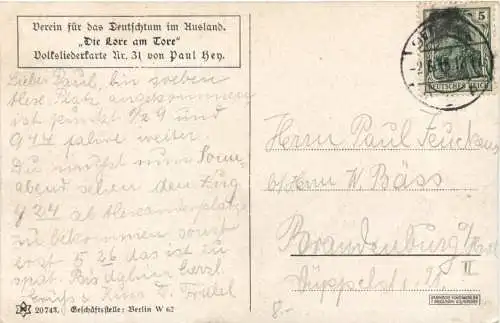 Verein für das Deutschtum im Ausland.
„Die Lore am Tore"
Volksliederkarte Nr. 31 von Paul Hey.
Lieber Paul, bin soeben
Alex. Platz angekommen
ist punkt 1/2 9 und
9 44 fahre weiter.
Du mußt nun Sonn-
abend sehen den Zug
4 24 ab Alexanderplatz
zu bekommen sonst
erst 5 26 das ist zu
spät. Bis dahin herzl.
Gruß
20743. Geschäftsstelle: Berlin W 62
5
DEUTSCHES REICH
Herrn Paul
b/ Herrn W. Bäss
Brandenburg a/
Düppelstr.
II
8.-